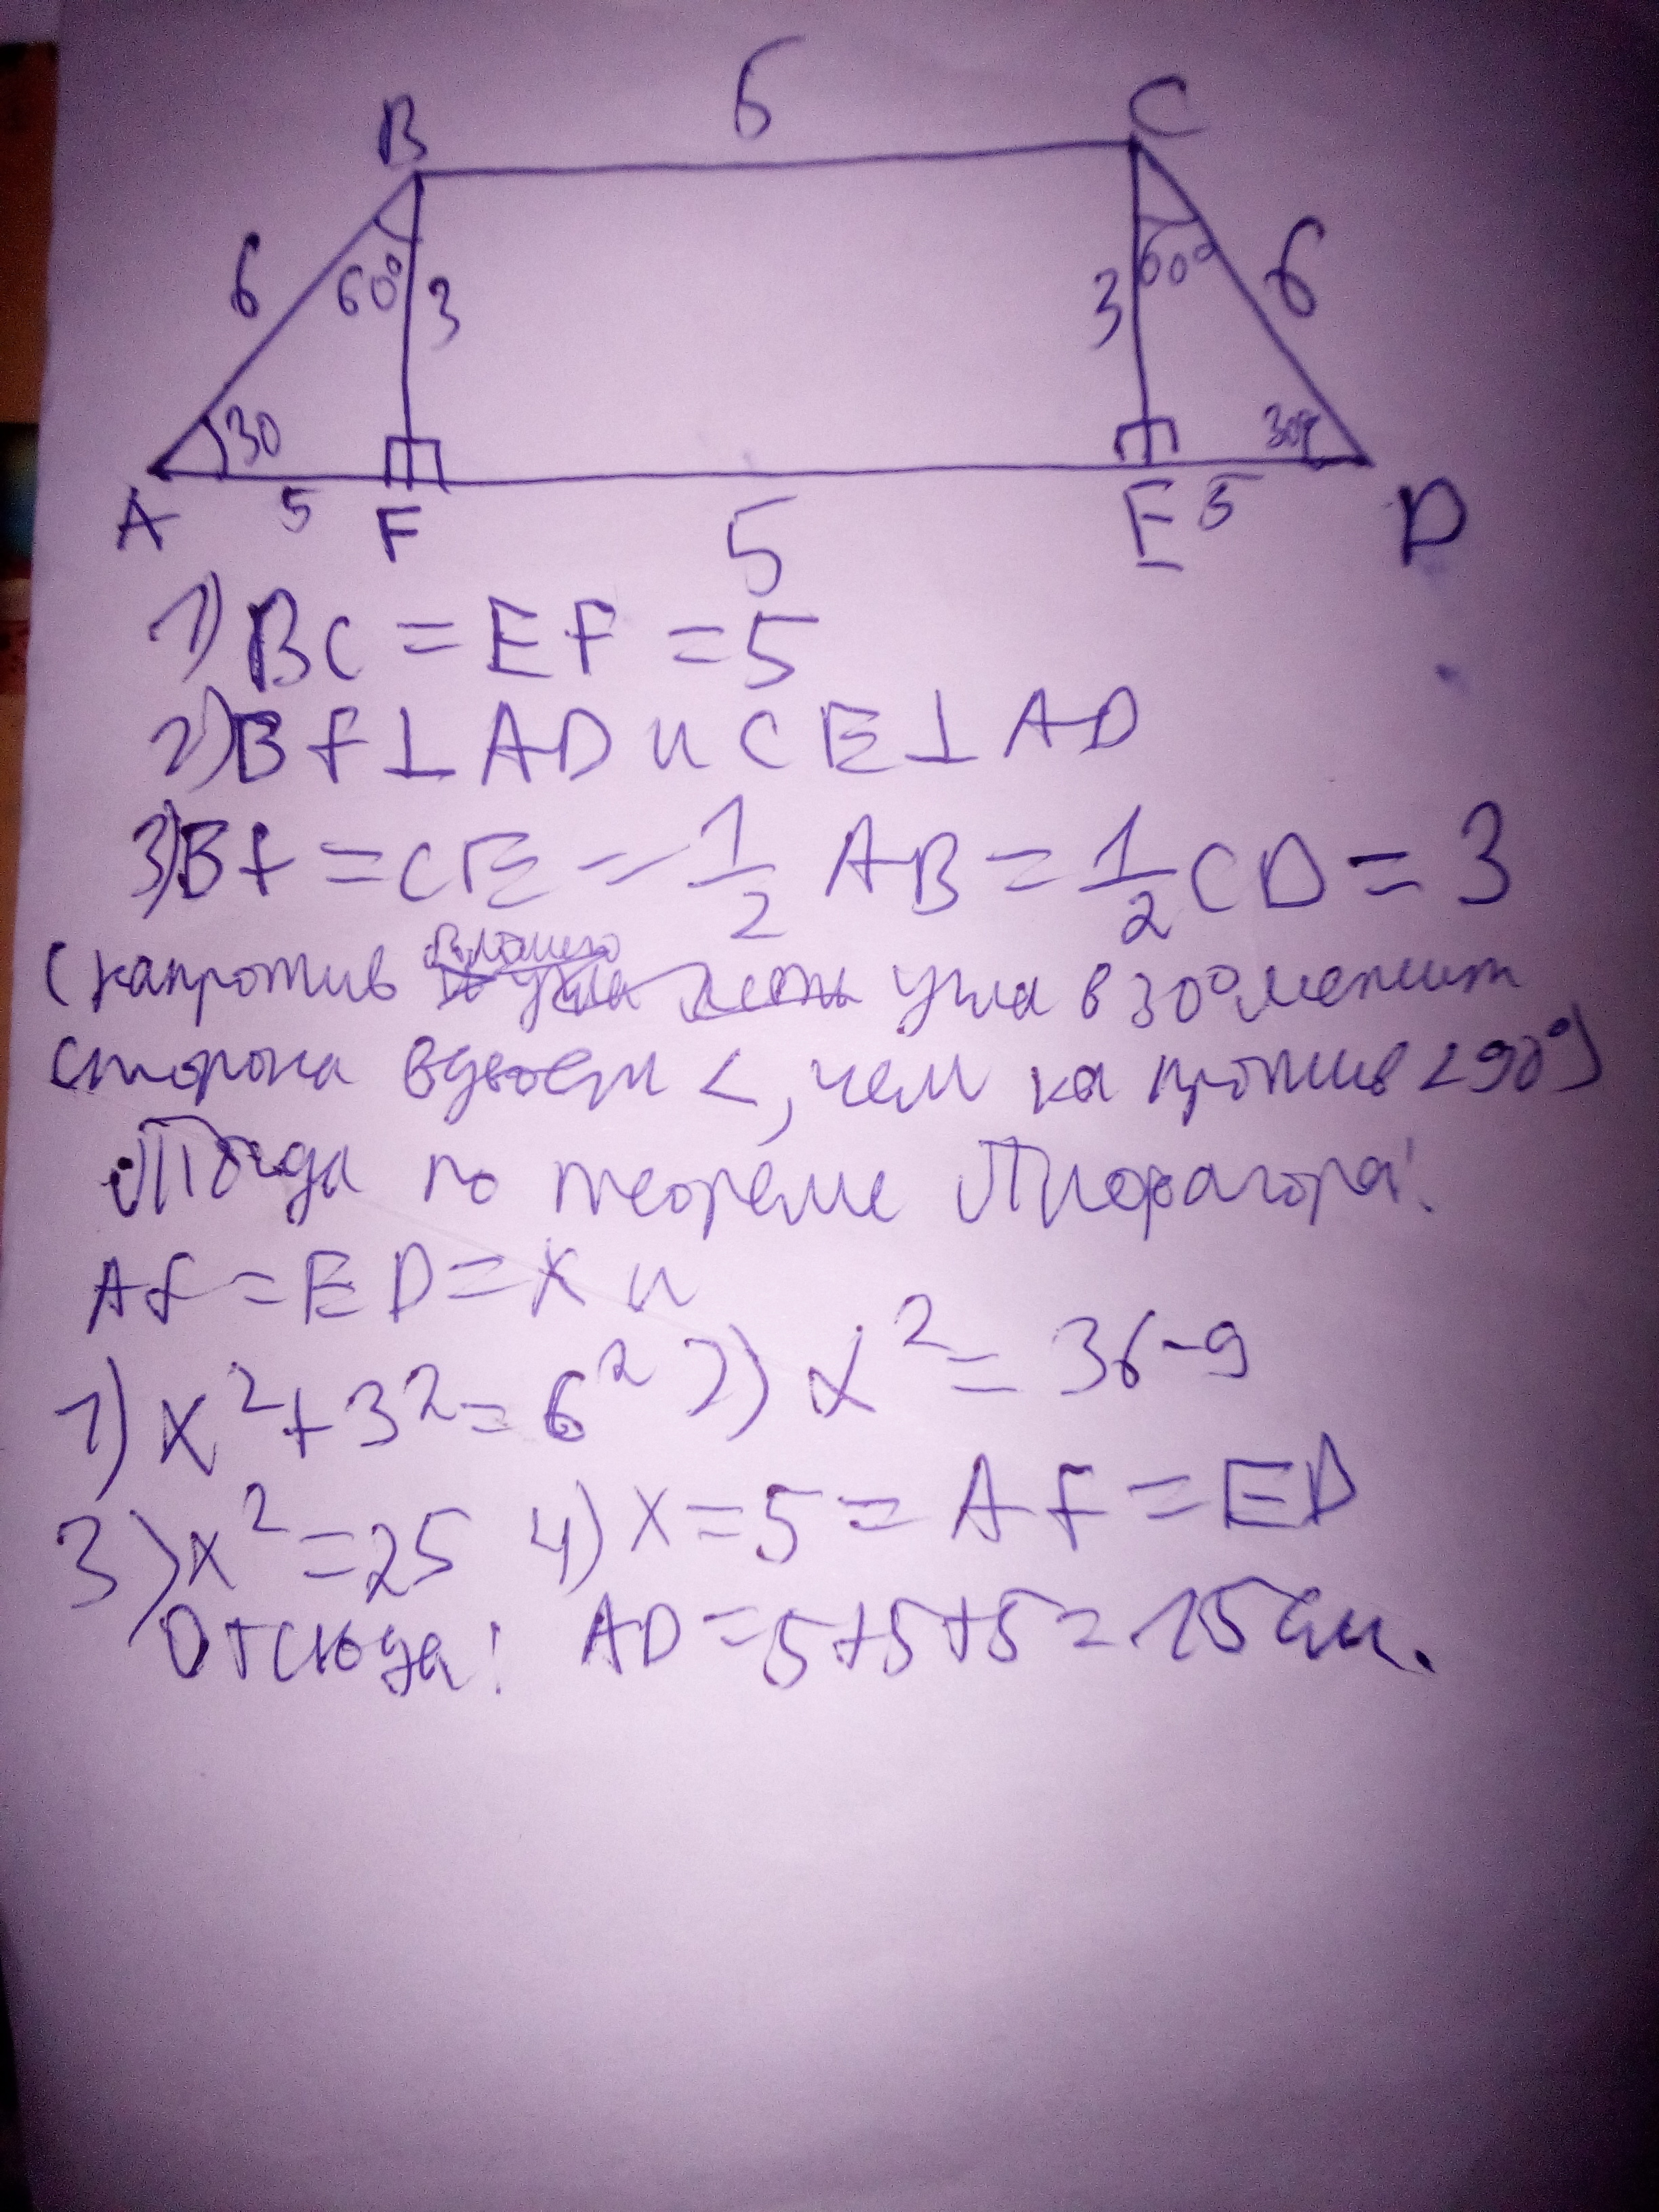 6
B C
6 60° 3 3 60° 6
30 30°
A 5 F 5 E 5 D
1) BC = EF = 5
2) BF ⊥ AD и CE ⊥ AD
3) BF = CE = 1/2 AB = 1/2 CD = 3
(напротив угла в 30° лежит
сторона вдвое <, чем напротив <90°)
Тогда по теореме Пифагора:
AF = ED = x и
1) x² + 3² = 6² 2) x² = 36 - 9
3) x² = 25 4) x = 5 = AF = ED
Отсюда: AD = 5 + 5 + 5 = 15 см.